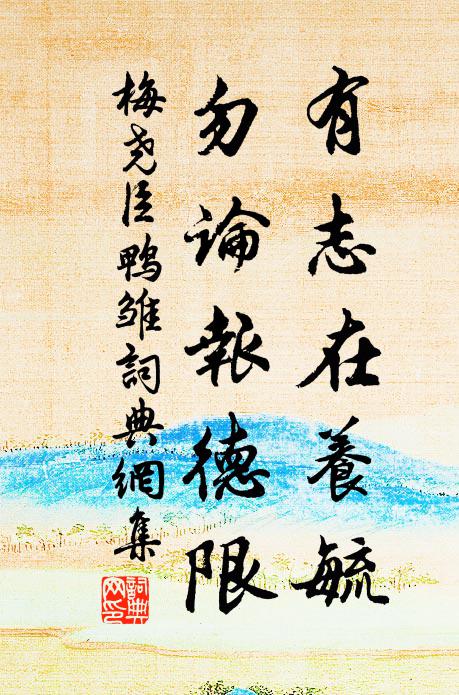 有志在養毓
勿論報德限
梅尧臣鴨雛詞典網集
詞典